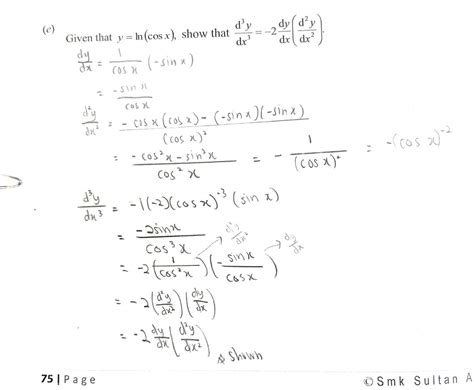 (c) Given that y = ln(cos x), show that d³y/dx³ = -2 dy/dx (d²y/dx²).
dy/dx = 1/cos x (-sin x)
= -sin x/cos x
d²y/dx² = - cos x (cos x) - (-sin x)(-sin x)/(cos x)²
= - cos² x - sin² x/cos² x = - 1/(cos x)² = -(cos x)⁻²
d³y/dx³ = -1(-2)(cos x)⁻³ (sin x)
= -2 sin x/cos³ x
= -2 (1/cos² x) → d²y/dx² (- sin x/cos x) → dy/dx
= -2 (d²y/dx²) (dy/dx)
= -2 dy/dx (d²y/dx²) shown
75 | Page © Smk Sultan A